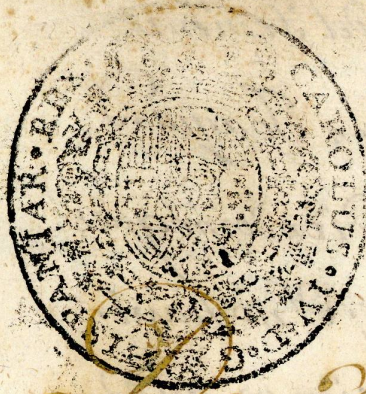 CAROLUS·IV·D·G·
HISPANIAR·REX·